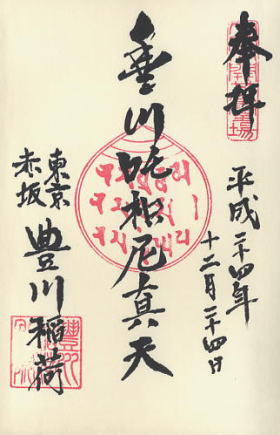 奉拝
平成二十四年
十二月二十四日
豊川吒枳尼真天
東京
赤坂
豊川稲荷